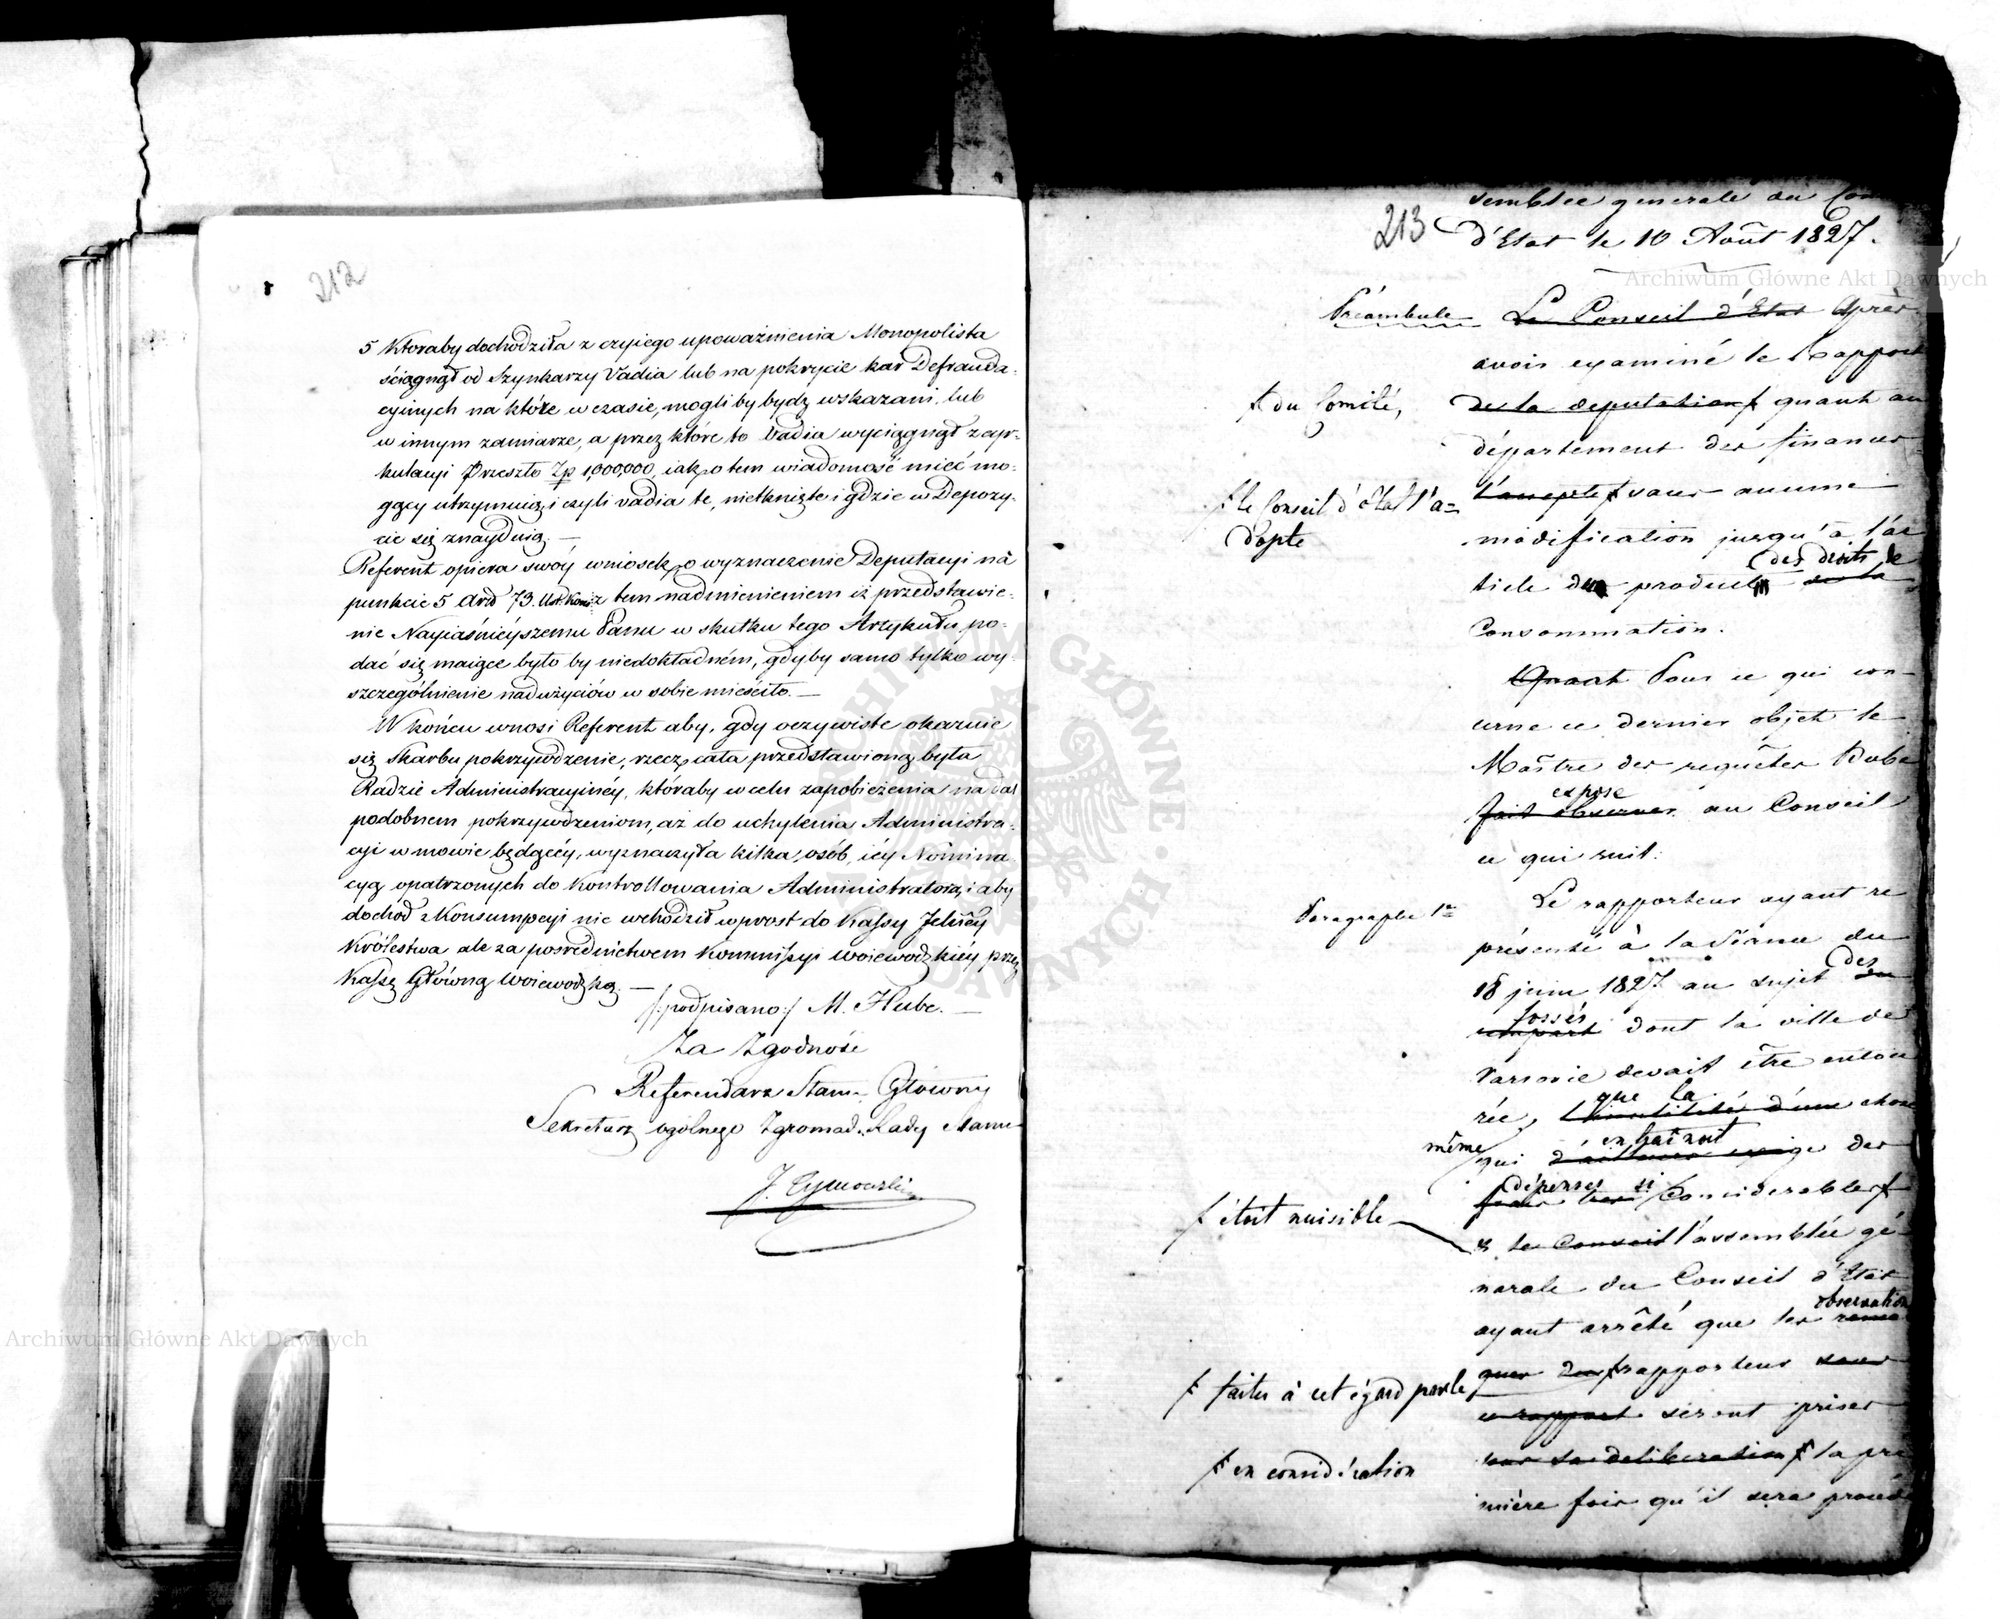 212
5 Ktoraby dochodziła z czyiego upoważnienia Monopolista
ściągnął od Szynkarzy Vadia lub na pokrycie kar Defrauda-
cyinych na które w czasie, mogli by bydź wskazani, lub
w innym zamiarze, a przez które to Vadia wyciągnął z cyr-
kulacyi Przeszło Zp 1,000,000, iak o tem wiadomość mieć mo-
gący utrzymuią, i czyli vadia te, nietknięte i gdzie w Depozy-
cie się znayduią. —
Referent opiera swóy wniosek, o wyznaczenie Deputacyi na
punkcie 5 Art 73. Ust. Kons: z tem nadmienieniem iż przedstawie-
nie Nayiaśnieyszemu Panu w skutku tego Artykułu po-
dać się maiące było by niedokładném, gdyby samo tylko wy-
szczególnienie nadużyciów w sobie mieściło. —
W końcu wnosi Referent aby, gdy oczywiste okazuie
się Skarbu pokrzywdzenie, rzecz cała przedstawioną była
Radzie Administracyinéy, któraby w celu zapobieżenia nadal
podobnem pokrzywdzeniom, aż do uchylenia Administra-
cyi w mowie będącéy, wyznaczyła kilka osób, iéy Nomina
cyą opatrzonych do Kontrollowania Administratora, i aby
dochód z Konsumpcyi nie wchodził wprost do Kassy Jelnéy
Królestwa ale za posrednictwem Kommissyi Woiewodzkiéy przez
Kassę Główną Woiewodzką. —
/:podpisano:/ M. Hube. —
Za Zgodność
Referendarz Stanu, Główny
Sekretarz ogólnego Zgromad: Rady Stanu
J. Tymowski
213
semblée generale du Con
d'Etat le 10 Août 1827.
Préambule Le Conseil d'Etat Après
avoir examiné le Rapport
+ du Comité, de la deputation + quant au
département des finances
+ le Conseil d'état l'a= l'accepte + sans aucune
dopte modification jusqu'à l'ar
des droits de
ticle du produit sur la
Consommation.
Quant Pour ce qui con-
cerne ce dernier objet le
Maître des requêtes Hube
expose
fait observer au Conseil
ce qui suit:
Paragraphe 1er Le rapporteur ayant re
présenté à la séance du
des
18 juin 1827 au sujet du
fossés
rempart dont la ville de
Varsovie devait être entou
que la
rée, l'inutilité d'une chose
entraînait
même qui d'ailleurs exige des
dépenses si
frais très considerables +
+ étoit nuisible & le Conseil l'assemblée gé-
nerale du Conseil d'Etat
observations
ayant arrêté que les remar
+ faites à cet égard par le ques du + rapporteur sous
ce rapport seront prises
+ en considération sur sa deliberation + la pre
mière fois qu'il sera procéd